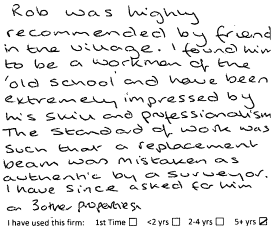 Rob was highly
recommended by friend
in the village. I found him
to be a workman of the
'old school' and have been
extremely impressed by
his skill and professionalism
The standad of work was
such that a replacement
beam was mistaken as
authentic by a surveyor.
I have since asked for him
on 3 other properties.
I have used this firm: 1st Time ☐ <2 yrs ☐ 2-4 yrs ☐ 5+ yrs ☑